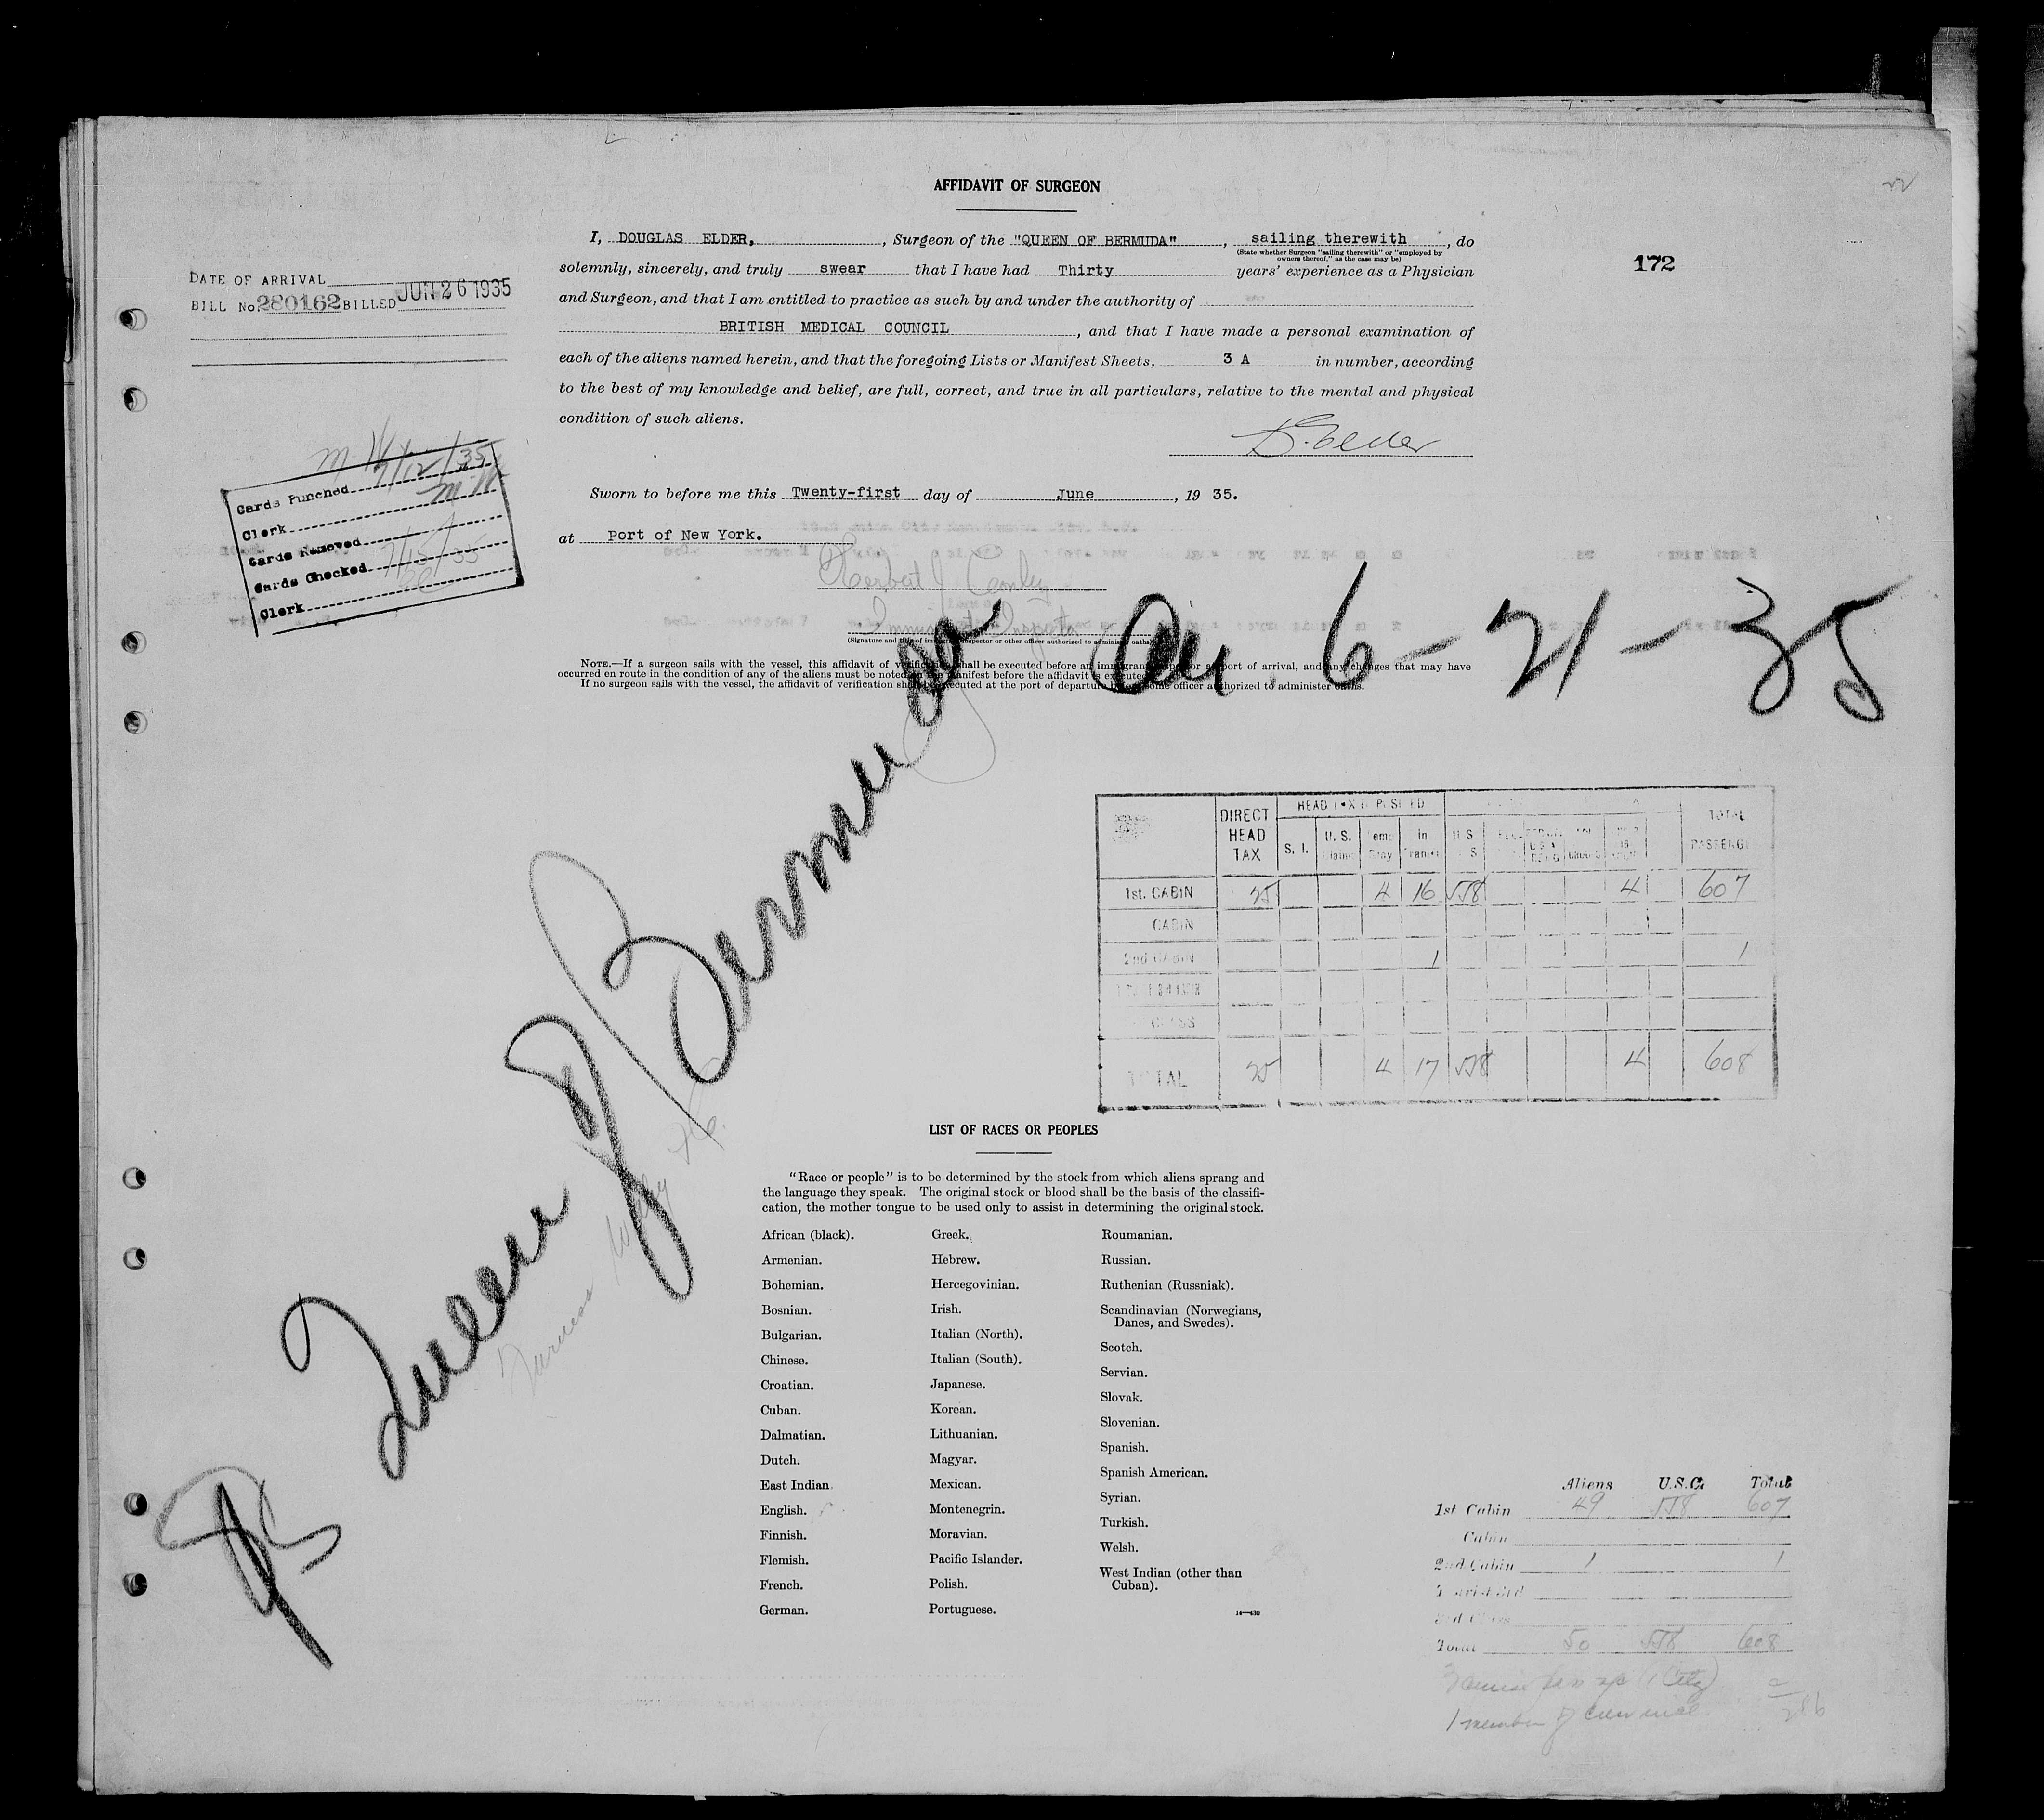 AFFIDAVIT OF SURGEON
I, DOUGLAS ELDER, , Surgeon of the "QUEEN OF BERMUDA" , sailing therewith , do
(State whether Surgeon "sailing therewith" or "employed by
owners thereof," as the case may be)
solemnly, sincerely, and truly swear that I have had Thirty years' experience as a Physician
and Surgeon, and that I am entitled to practice as such by and under the authority of
BRITISH MEDICAL COUNCIL , and that I have made a personal examination of
each of the aliens named herein, and that the foregoing Lists or Manifest Sheets, 3 A in number, according
to the best of my knowledge and belief, are full, correct, and true in all particulars, relative to the mental and physical
condition of such aliens.
D. Elder
Sworn to before me this Twenty-first day of June , 19 35.
at Port of New York.
Herbert J Conley
Immigrant Inspector
(Signature and title of immigrant inspector or other officer authorized to administer oaths)
NOTE.—If a surgeon sails with the vessel, this affidavit of verification shall be executed before an immigrant inspector at port of arrival, and any changes that may have
occurred en route in the condition of any of the aliens must be noted on the manifest before the affidavit is executed.
If no surgeon sails with the vessel, the affidavit of verification shall be executed at the port of departure before some officer authorized to administer oaths.
172
DATE OF ARRIVAL
BILL No. 280162 BILLED JUN 26 1935
Cards Punched
Clerk
Cards Removed
Cards Checked 7/15/35
Clerk
Queen of Bermuda Arr. 6-21-35
Furness Withy
DIRECT HEAD TAX
S. I.
U. S.
U S
TOTAL
1st. CABIN 25 4 16 558 4 607
CABIN
2nd CABIN 1 1
CLASS
TOTAL 25 4 17 558 4 608
LIST OF RACES OR PEOPLES
"Race or people" is to be determined by the stock from which aliens sprang and
the language they speak. The original stock or blood shall be the basis of the classifi-
cation, the mother tongue to be used only to assist in determining the original stock.
African (black).
Armenian.
Bohemian.
Bosnian.
Bulgarian.
Chinese.
Croatian.
Cuban.
Dalmatian.
Dutch.
East Indian.
English.
Finnish.
Flemish.
French.
German.
Greek.
Hebrew.
Hercegovinian.
Irish.
Italian (North).
Italian (South).
Japanese.
Korean.
Lithuanian.
Magyar.
Mexican.
Montenegrin.
Moravian.
Pacific Islander.
Polish.
Portuguese.
Roumanian.
Russian.
Ruthenian (Russniak).
Scandinavian (Norwegians,
Danes, and Swedes).
Scotch.
Servian.
Slovak.
Slovenian.
Spanish.
Spanish American.
Syrian.
Turkish.
Welsh.
West Indian (other than
Cuban).
14—430
Aliens U.S.C. Total
1st Cabin 49 558 607
Cabin
2nd Cabin 1 1
Total 50 558 608
1 member of crew incl.